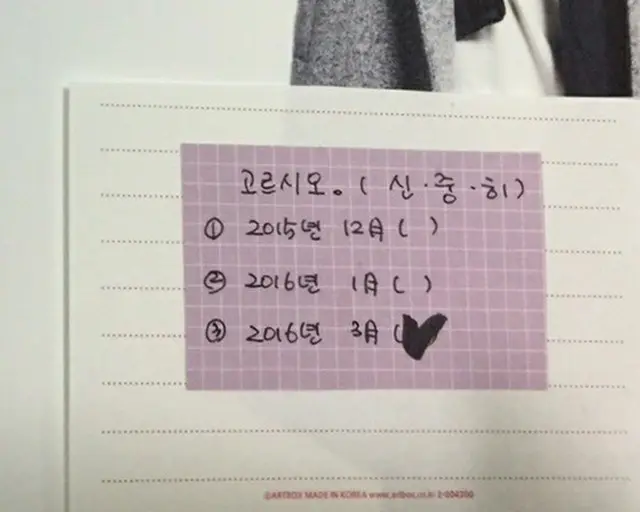 고르시오. ( 신·중·히)
① 2015년 12月 ( )
② 2016년 1月 ( )
③ 2016년 3月 (
ⓒARTBOX MADE IN KOREA www.artbox.co.kr